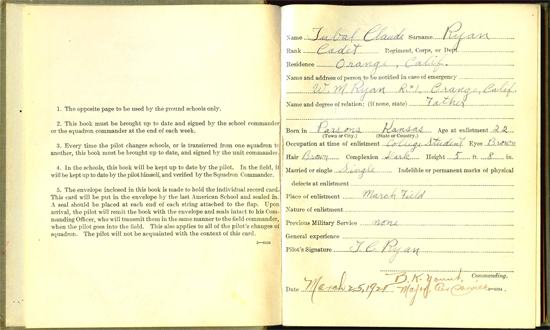 1. The opposite page to be used by the ground schools only.
2. This book must be brought up to date and signed by the school commander
or the squadron commander at the end of each week.
3. Every time the pilot changes schools, or is transferred from one squadron to
another, this book must be brought up to date, and signed by the unit commander.
4. In the schools, this book will be kept up to date by the pilot. In the field, it
will be kept up to date by the pilot himself, and verified by the Squadron Commander.
5. The envelope inclosed in this book is made to hold the individual record card.
This card will be put in the envelope by the last American School and sealed in.
A seal should be placed at each end of each string attached to the flap. Upon
arrival, the pilot will remit the book with the envelope and seals intact to his Com-
manding Officer, who will transmit them in the same manner to the field commander,
when the pilot goes into the field. This also applies to all of the pilot's changes of
squadron. The pilot will not be acquainted with the context of this card.
Name Tubal Claude Surname Ryan
Rank Cadet Regiment, Corps, or Dept.
Residence Orange, Calif.
Name and address of person to be notified in case of emergency
W. M. Ryan R#1, Orange, Calif.
Name and degree of relation: (If none, state) Father
Born in Parsons Kansas Age at enlistment 22
(Town or City.) (State or Country.)
Occupation at time of enlistment College Student Eyes Brown
Hair Brown Complexion Dark Height 5 ft. 8 in.
Married or single Single Indelible or permanent marks of physical
defects at enlistment
Place of enlistment March Field
Nature of enlistment
Previous Military Service none
General experience
Pilot's Signature T. C. Ryan
B. K. Yount, Commanding.
Date March 25, 1921 Major, Air Service